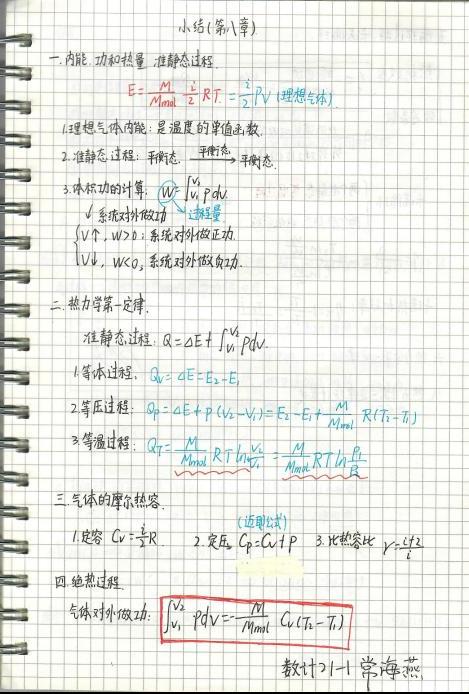 小结(第八章)
一.内能.功和热量 准静态过程.
E=M/Mmol i/2 RT=i/2 PV(理想气体).
1.理想气体内能:是温度的单值函数.
2.准静态过程:平衡态 平衡态→ 平衡态.
3.体积功的计算:W=∫V1V2 pdv.
↙系统对外做功 ↘过程量.
{V↑,W>0;系统对外做正功.
V↓,W<0,系统对外做负功.
二.热力学第一定律.
准静态过程:Q=ΔE+∫V1V2 pdv.
1.等体过程:Qv=ΔE=E2-E1
2.等压过程:Qp=ΔE+p(V2-V1)=E2-E1+M/Mmol R(T2-T1)
3.等温过程:QT=M/Mmol RTlnV2/V1=M/Mmol RTlnP1/P2
三.气体的摩尔热容.
(迈耶公式)
1.定容 Cv=i/2R. 2.定压 Cp=Cv+P 3.比热容比 γ=i+2/i
四.绝热过程.
气体对外做功:∫V1V2 pdv=-M/Mmol Cv(T2-T1)
数计21-1 常海燕